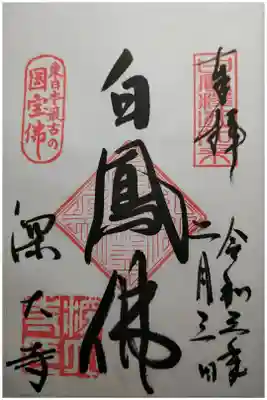 奉拝
令和三年
二月三日
白鳳佛
東日本最古の
国宝佛
深大寺